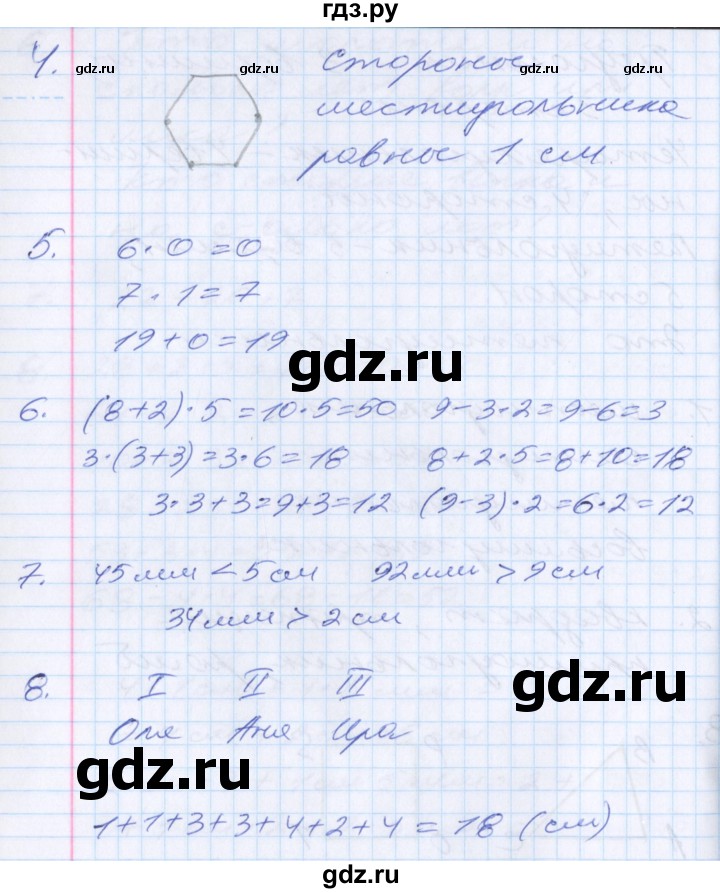 гдз.ру
4. Стороны
gdz.ru gdz.ru gdz.ru
шестиугольника
равны 1 см.
5. 6·0=0
7·1=7
19+0=19
gdz.ru
6. (8+2)·5=10·5=50 9-3·2=9-6=3
3·(3+3)=3·6=18 8+2·5=8+10=18
3·3+3=9+3=12 (9-3)·2=6·2=12
7. 45мм<5см 92мм>9см
34мм>2см
8. I II III
gdz.ru
Оля Аня Ира
gdz.ru
1+1+3+3+4+2+4=18 (см)
gdz.ru